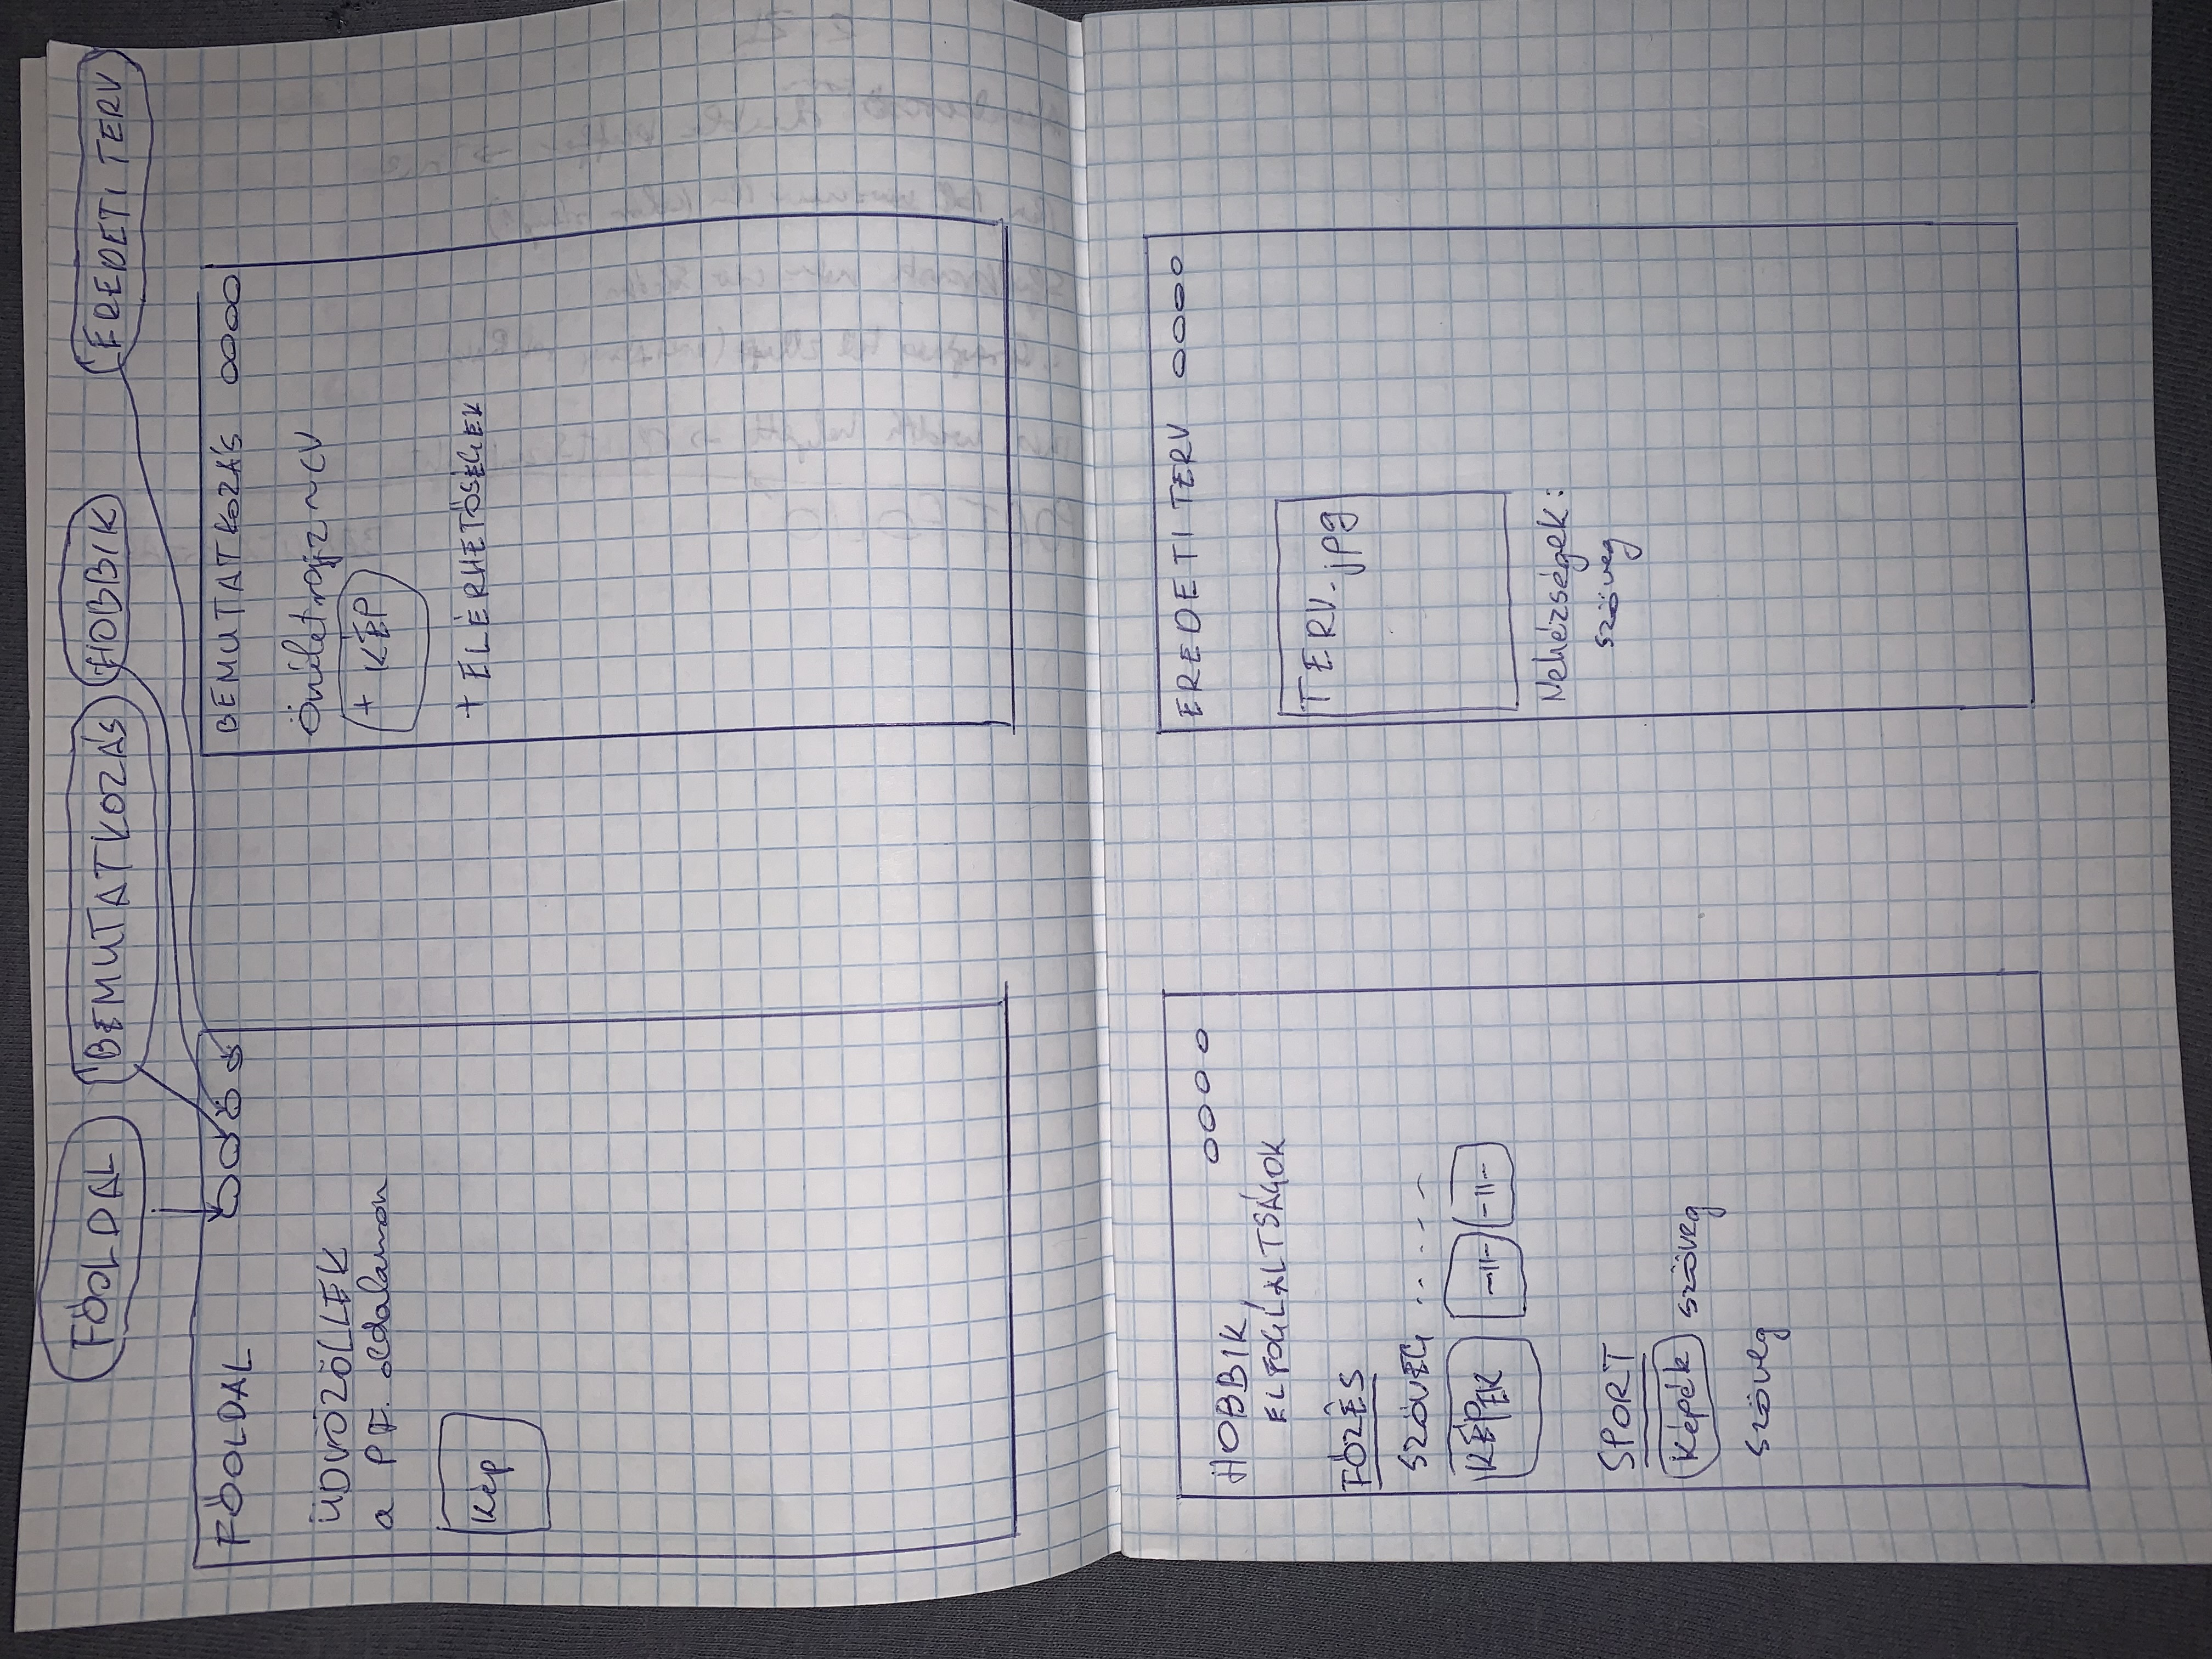 FŐOLDAL BEMUTATKOZÁS HOBBIK EREDETI TERV
FŐOLDAL
ÜDVÖZÖLLEK
a P.F. oldalamon
Kép
BEMUTATKOZÁS
Önéletrajz ~ CV
+ KÉP
+ ELÉRHETŐSÉGEK
HOBBIK,
ELFOGLALTSÁGOK
FŐZÉS
SZÖVEG -----
KÉPEK -11- -11-
SPORT
Képek szöveg
szöveg
EREDETI TERV
TERV.jpg
Nehézségek:
szöveg